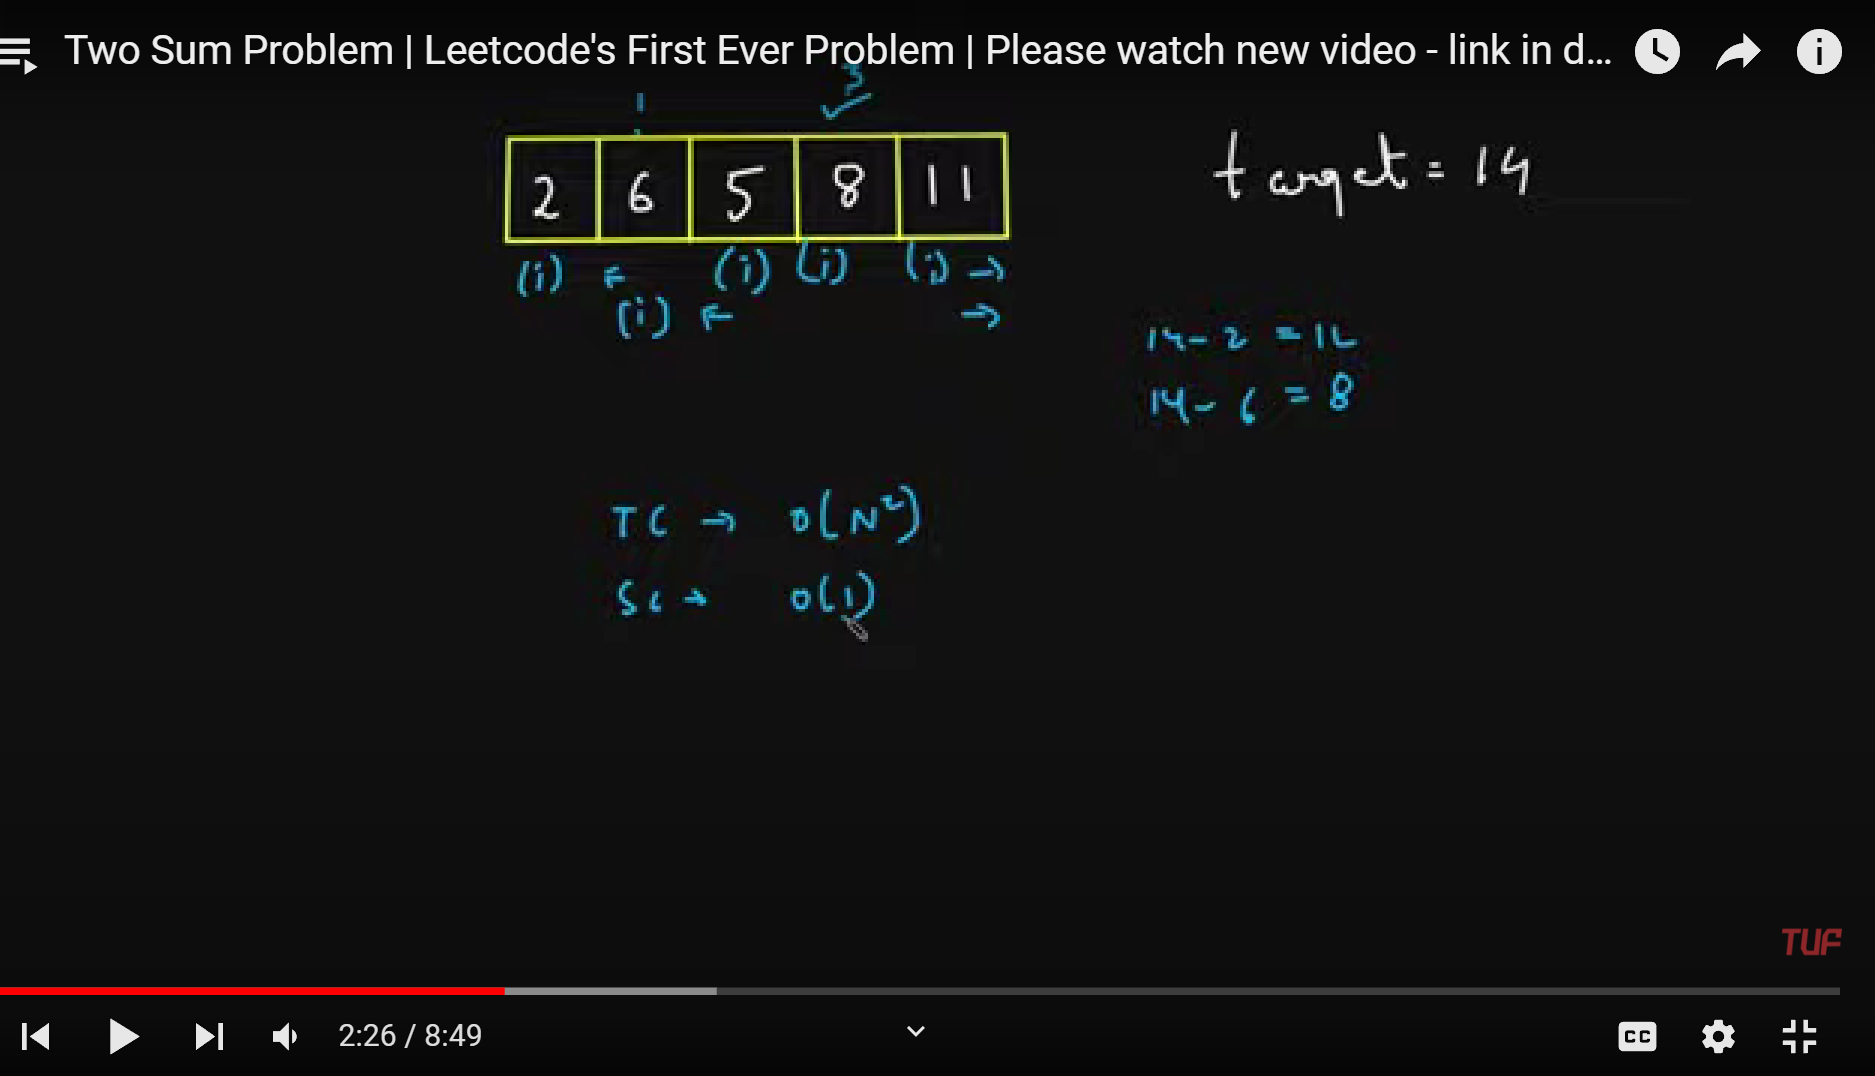 Two Sum Problem | Leetcode's First Ever Problem | Please watch new video - link in d...
1 3
2 6 5 8 11
target = 14
(i) (i) (i) (i)
(i)
14 - 2 = 12
14 - 6 = 8
TC → O(N²)
SC → O(1)
TUF
2:26 / 8:49
CC